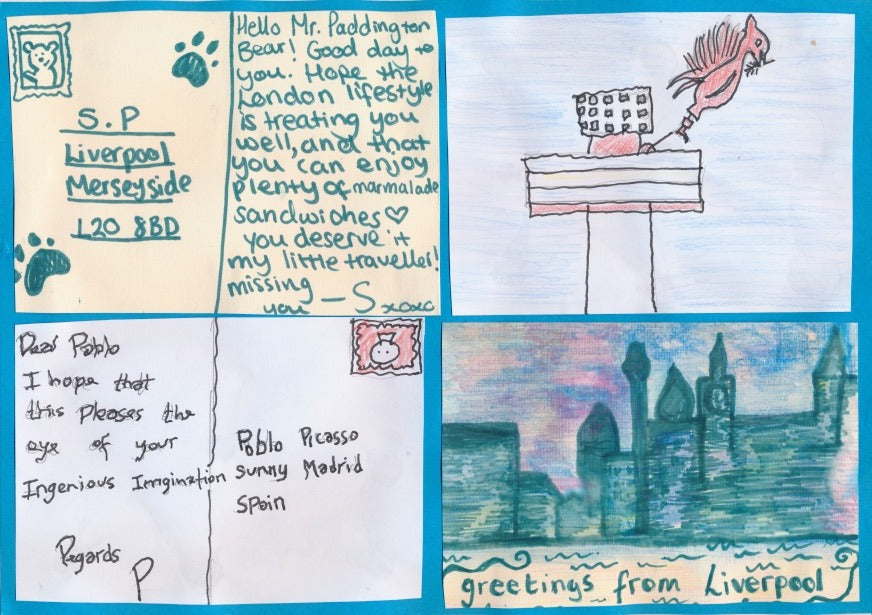 S.P
Liverpool
Merseyside
L20 8BD
Hello Mr. Paddington
Bear! Good day to
you. Hope the
London lifestyle
is treating you
well, and that
you can enjoy
plenty of marmalade
sandwiches♡
you deserve it
my little traveller!
missing
you - S xoxo
Dear Pablo
I hope that
this pleases the
eye of your
Ingenious Imagination
Regards
P
Pablo Picasso
Sunny Madrid
Spain
greetings from Liverpool